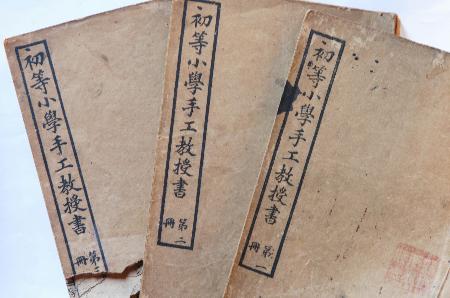 初等小學手工教授書 第三冊
初等小學手工教授書 第二冊
初等小學手工教授書 第一冊